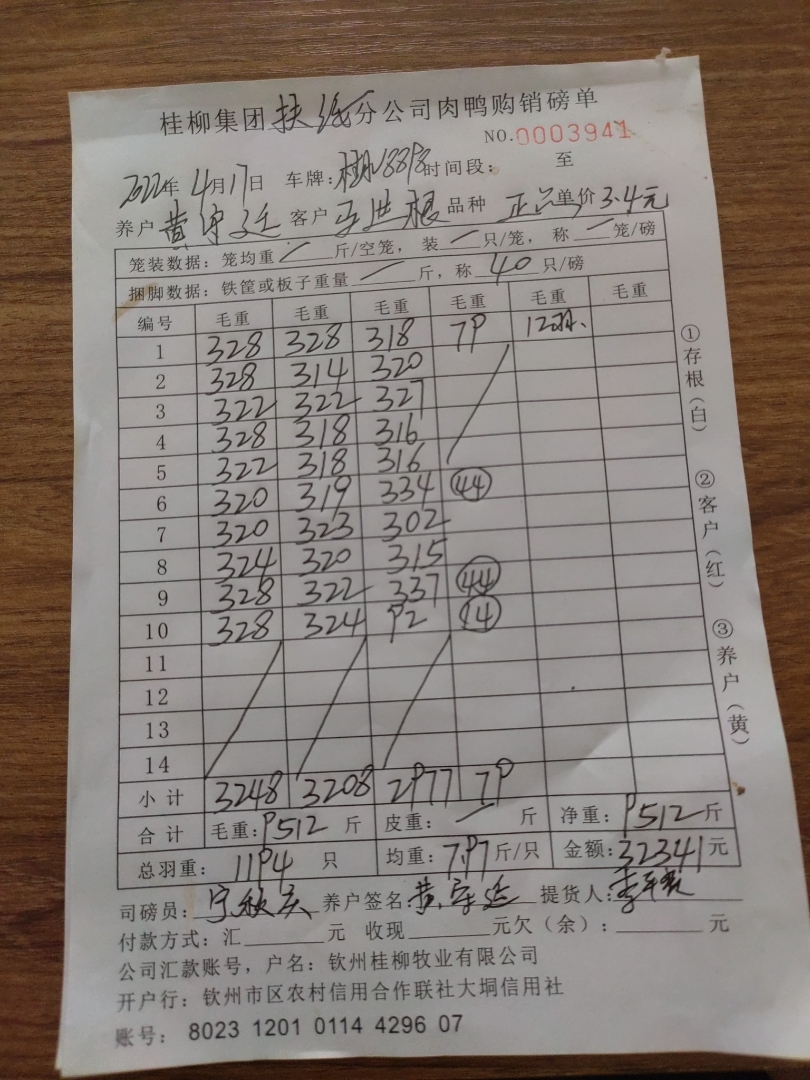 桂柳集团扶绥分公司肉鸭购销磅单
NO.0003941
2022年4月17日 车牌: 时间段: 至
养户 黄守廷 客户 根 品种 正品 单价 3.4元
笼装数据：笼均重 — 斤/空笼，装 — 只/笼，称 — 笼/磅
捆脚数据：铁筐或板子重量 — 斤，称 40 只/磅
编号 毛重 毛重 毛重 毛重 毛重 毛重
1 328 328 318 79 12羽.
2 328 314 320
3 322 322 327
4 328 318 316
5 322 318 316
6 320 319 334 44
7 320 323 302
8 324 320 315
9 328 322 337 44
10 328 324 92 14
11
12
13
14
小计 3248 3208 2977 79
合计 毛重: 9512 斤 皮重: — 斤 净重: 9512 斤
总羽重: 1194 只 均重: 7.97 斤/只 金额: 32341 元
司磅员: 养户签名 黄守廷 提货人:
付款方式: 汇 元 收现 元欠（余）: 元
公司汇款账号，户名：钦州桂柳牧业有限公司
开户行：钦州市区农村信用合作联社大垌信用社
账号： 8023 1201 0114 4296 07
①存根（白）
②客户（红）
③养户（黄）